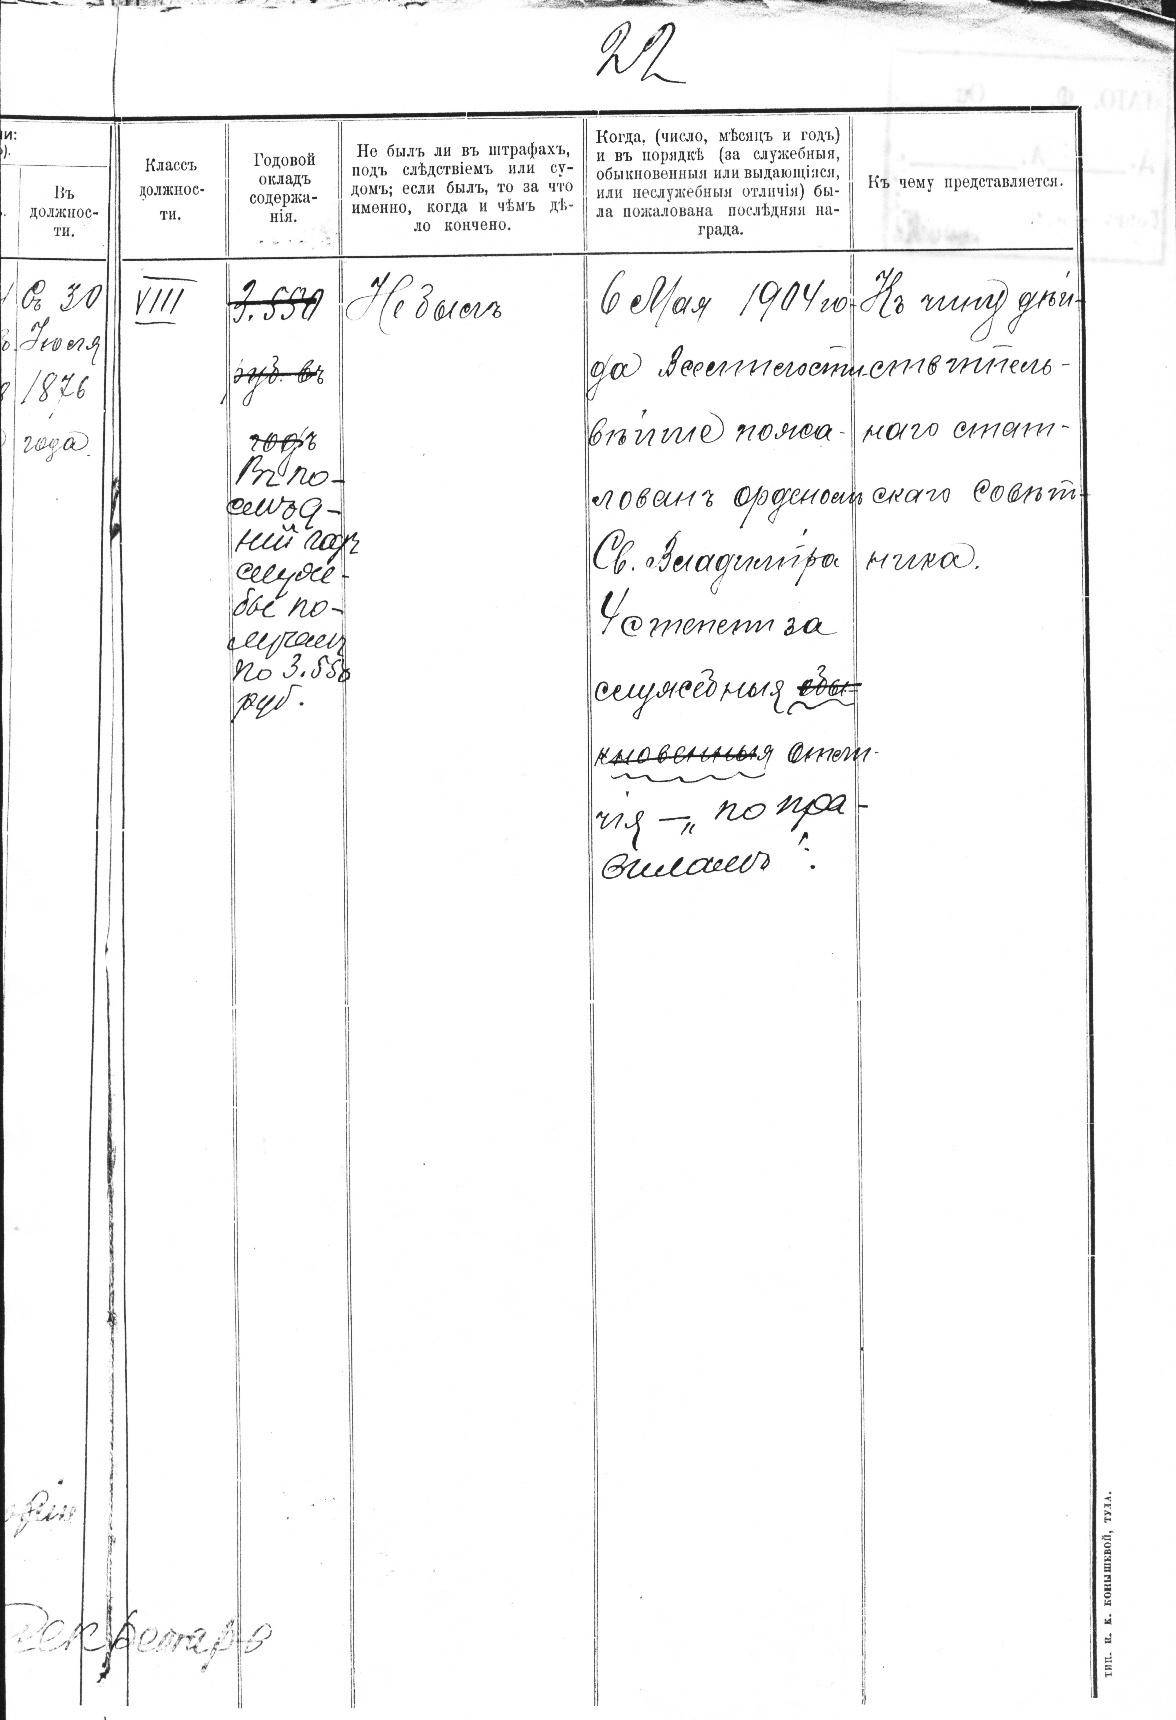 22
ии:
Въ
должнос-
ти.
Классъ
должнос-
ти.
Годовой
окладъ
содержа-
нія.
Не былъ ли въ штрафахъ,
подъ слѣдствіемъ или су-
домъ; если былъ, то за что
именно, когда и чѣмъ дѣ-
ло кончено.
Когда, (число, мѣсяцъ и годъ)
и въ порядкѣ (за служебныя,
обыкновенныя или выдающіяся,
или неслужебныя отличія) бы-
ла пожалована послѣдняя на-
града.
Къ чему представляется.
Съ 30
Іюля
1876
года.
VIII
3.550
руб. въ
годъ
Въ по-
слѣд-
ній годъ
служ-
бы по-
лучалъ
по 3.550
руб.
Не былъ
6 Мая 1904 го-
да Всемилости-
вѣйше пожа-
лованъ орденомъ
Св. Владиміра
4 степени за
служебныя обы-
кновенныя отли-
чія — „по пра-
виламъ“.
Къ чину дѣй-
ствитель-
наго стат-
скаго совѣт-
ника.
Секретарь
ТИП. И. К. КОНЫШЕВОЙ, ТУЛА.